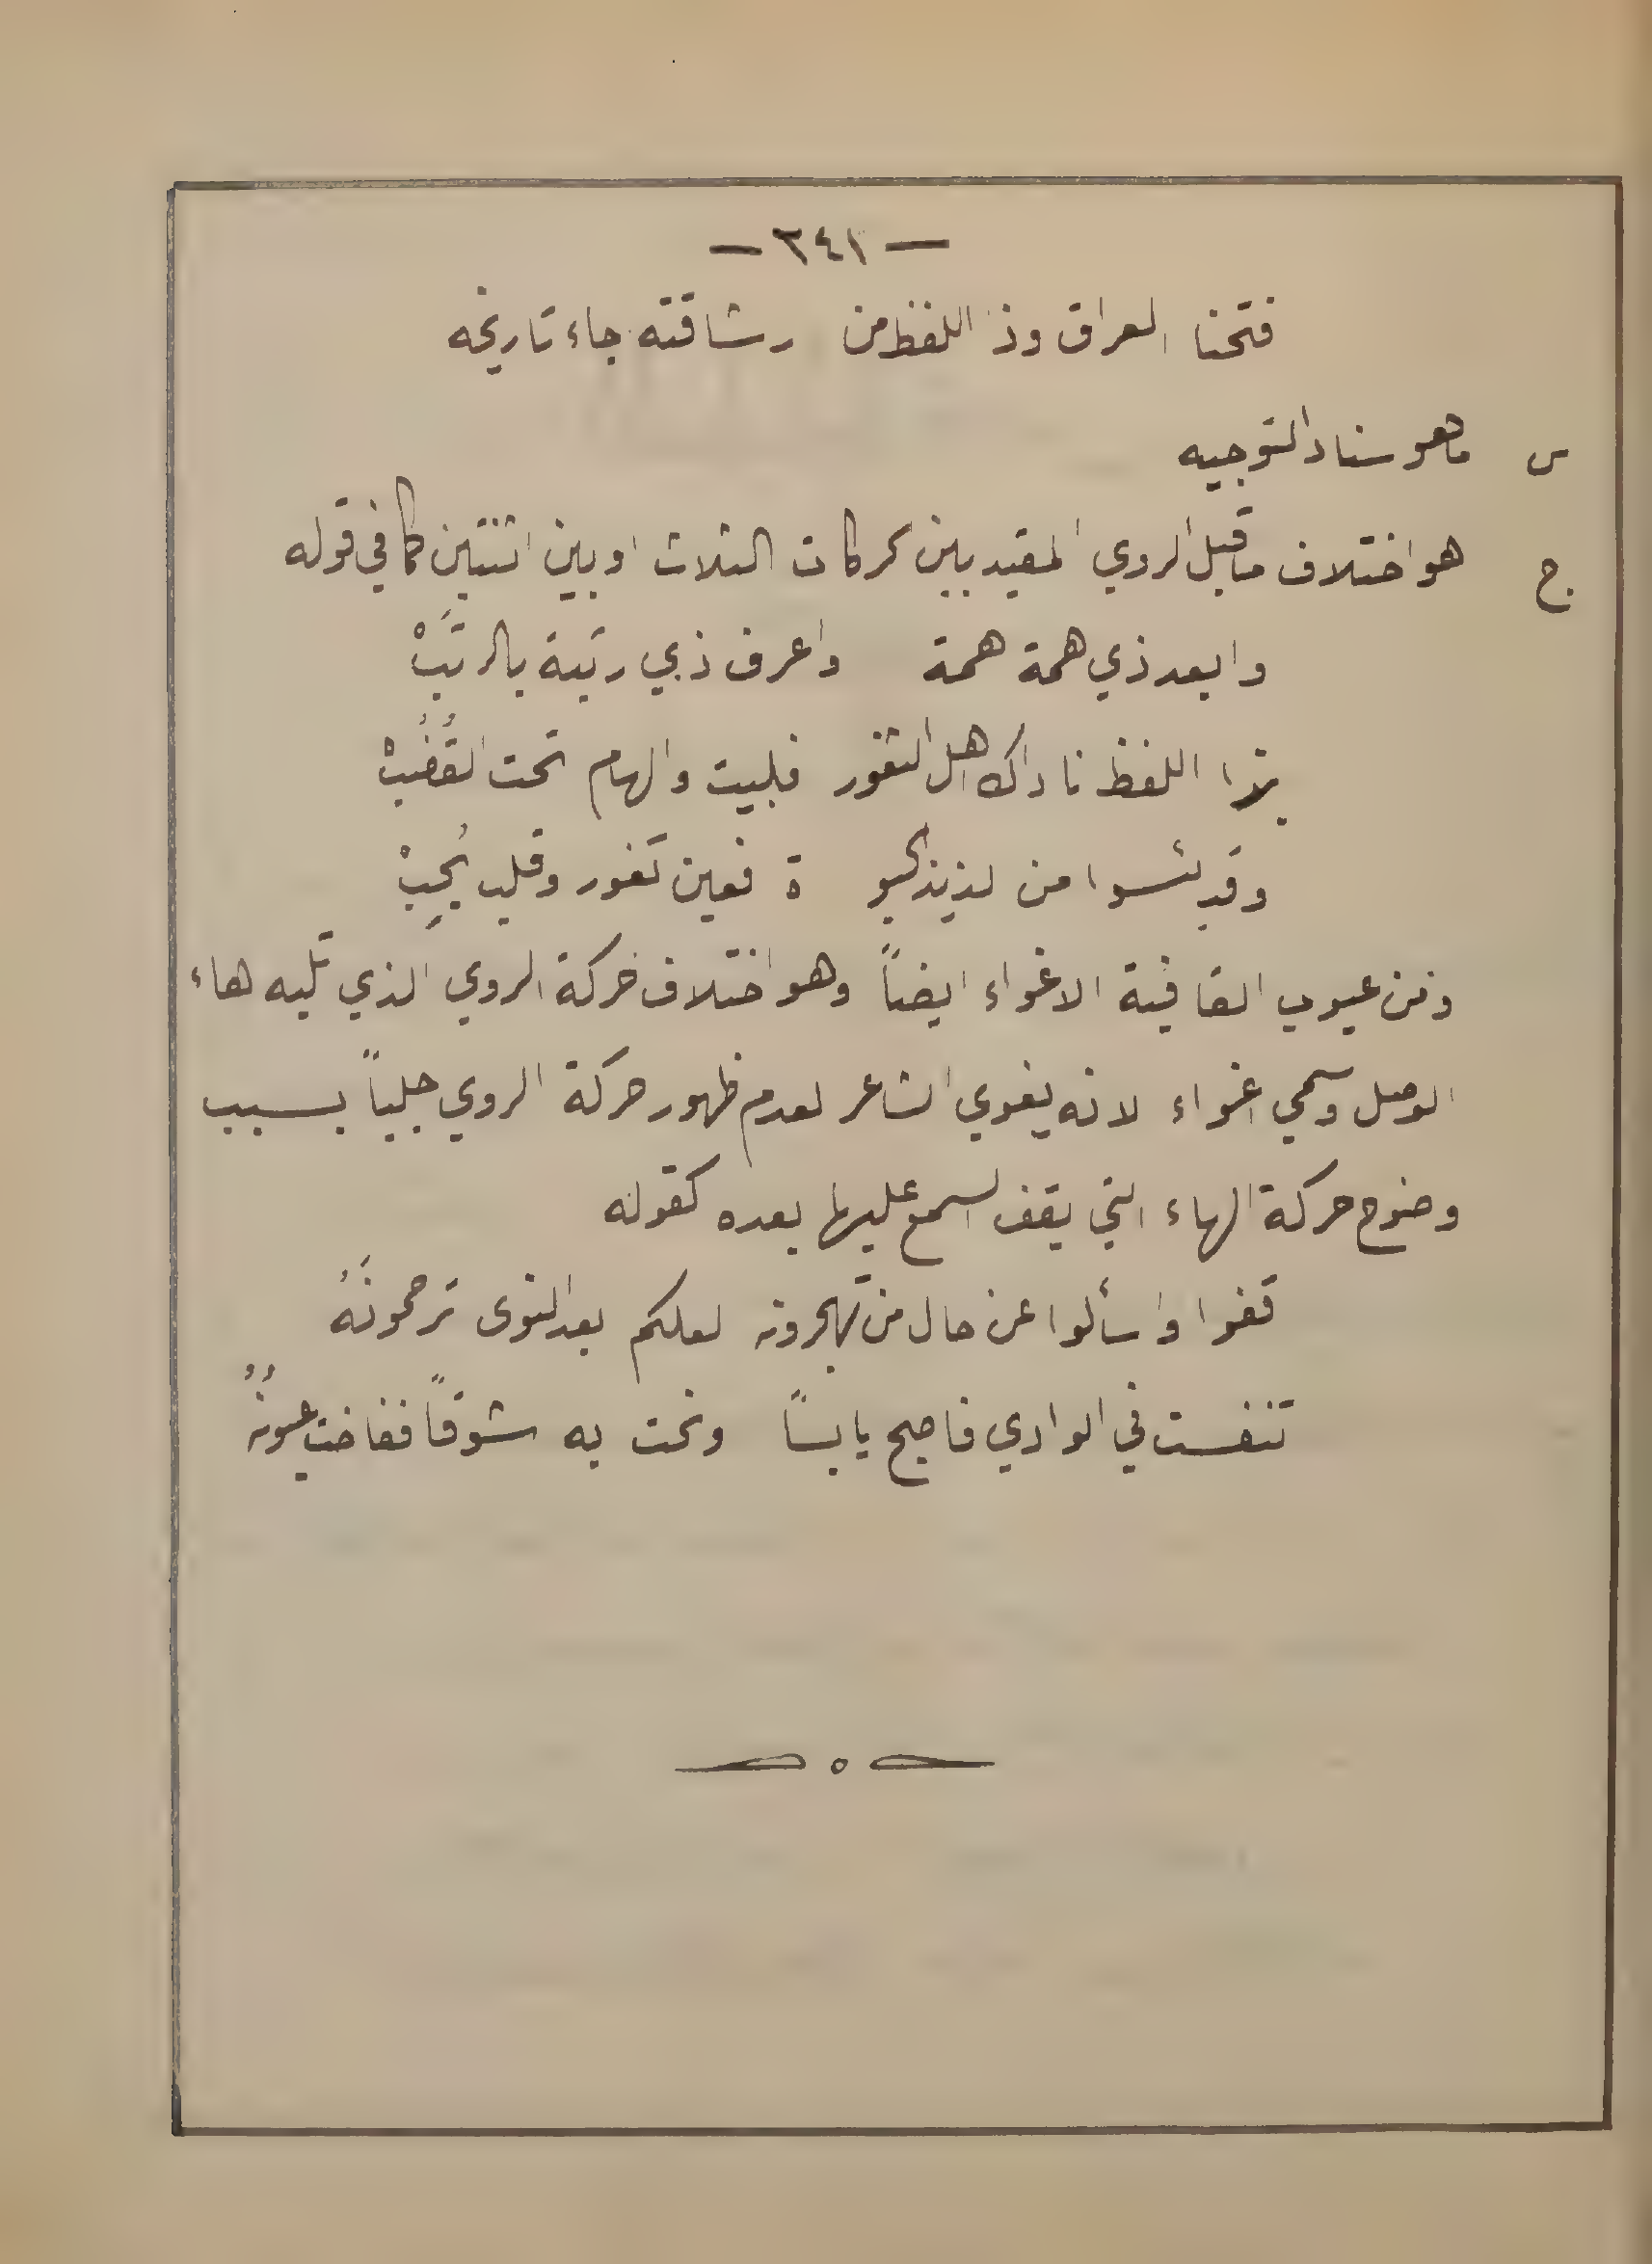 — ٣٤١ —
فتحنا العراق وذا اللفظ من رشاقته جاء تاريخه
س ما هو سناد التوجيه
ج هو اختلاف ما قبل الروي المقيد بين حركات الثلاث او بين اثنتين كما في قوله
وابعد ذي همة همة واعرف ذي رتبة بالرتَبْ
بذا اللفظ ناداك اهل الثغور فلبيت والهام تحت القُضُبْ
وقد يئسوا من لذيذ الحيو ة فعين تغور وقلب يُجِبْ
ومن عيوب القافية الاغواء ايضاً وهو اختلاف حركة الروي الذي تليه هاء
الوصل وسمي اغواء لانه يغوي الشاعر لعدم ظهور حركة الروي جلياً بسبب
وضوح حركة الهاء التي يقف السمع عليها بعده كقوله
قفوا واسألوا عن حال من تهجرونه لعلكم بعد النوى ترحمونَهُ
تنفست في الوادي فاصبح يابساً ونحت به شوقاً ففاضت عيونُهُ